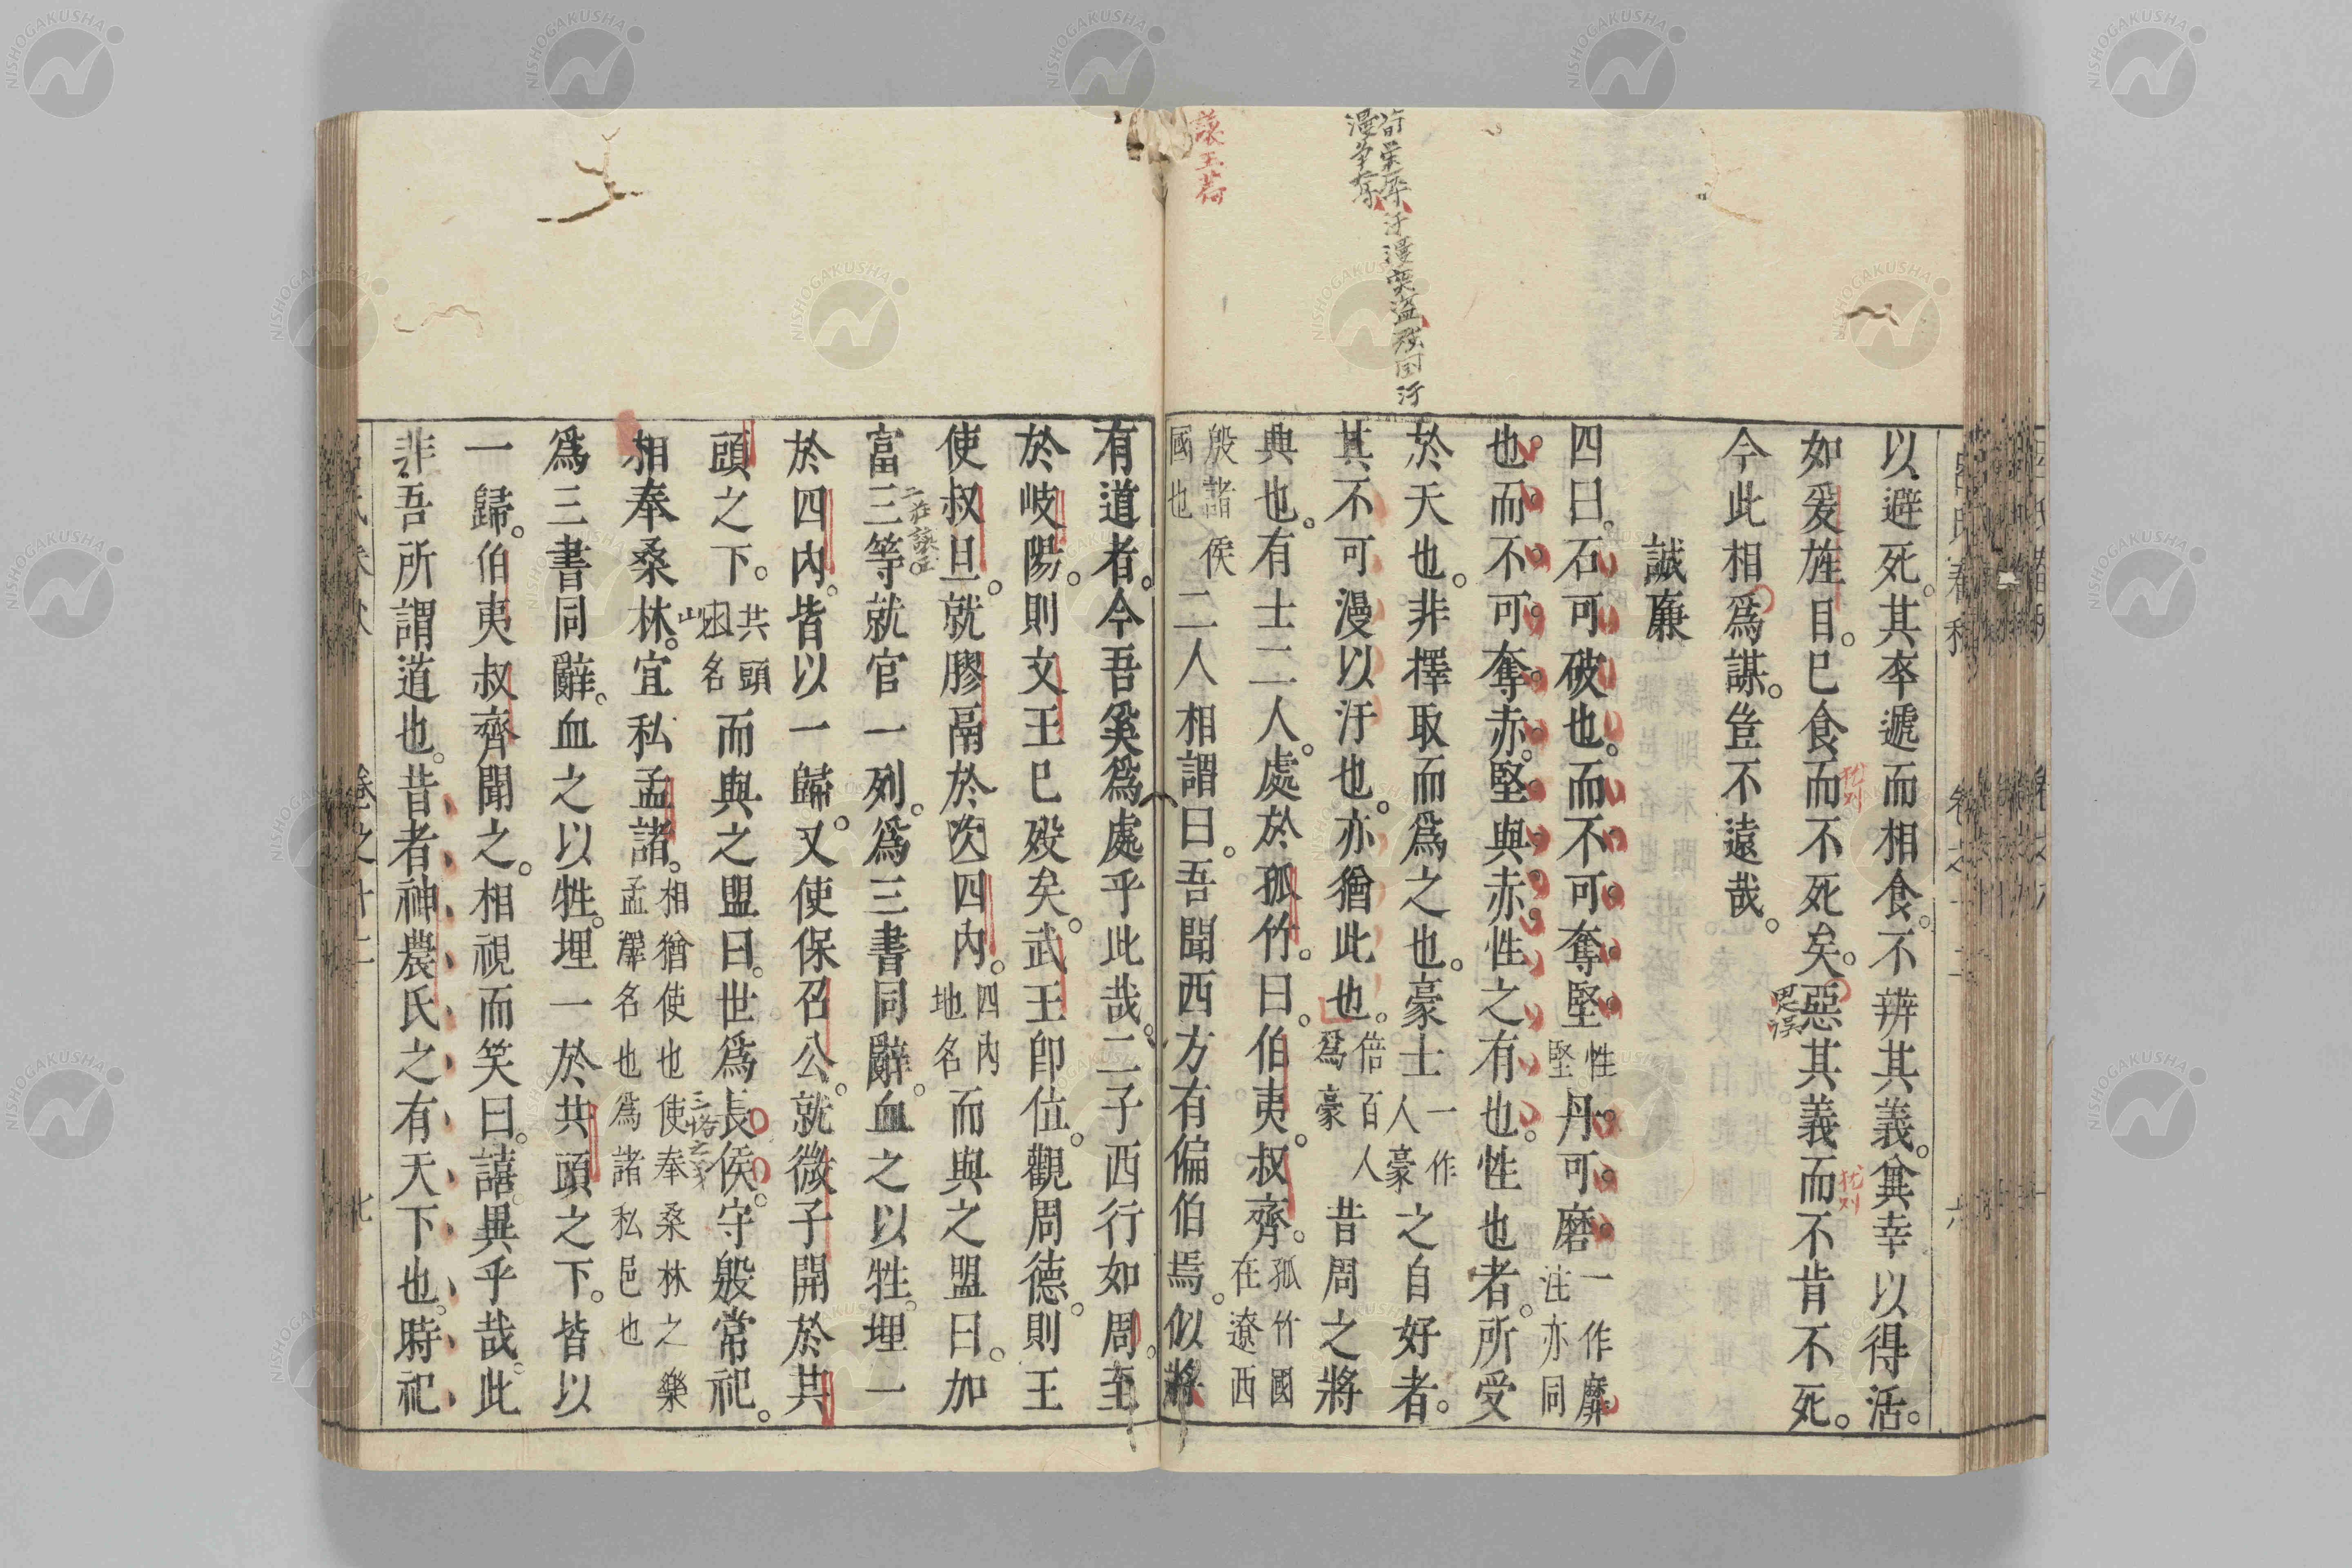 以避死其卒遞而相食不辨其義兾幸以得活
如爰旌目已食而不死矣惡其義而不肯不死
今此相爲謀豈不遠哉
誠廉
四曰石可破也而不可奪堅性堅丹可磨一作靡注亦同
也而不可奪赤堅與赤性之有也性也者所受
於天也非擇取而爲之也豪士一作人豪之自好者
其不可漫以汙也亦猶此也倍百人爲豪昔周之將
典也有士二人處於孤竹曰伯夷叔齊孤竹國在遼西
殷諸侯國也二人相謂曰吾聞西方有偏伯焉似將
有道者今吾奚爲處乎此哉二子西行如周至
於岐陽則文王已歿矣武王卽位觀周德則王
使叔旦就膠鬲於次四內四內地名而與之盟曰加
富三等就官一列爲三書同辭血之以牲埋一
於四內皆以一歸又使保召公就微子開於共
頭之下共頭山名而與之盟曰世爲長侯守殷常祀
相奉桑林宜私孟諸相猶使也使奉桑林之樂孟澤名也爲諸私邑也
爲三書同辭血之以牲埋一於共頭之下皆以
一歸伯夷叔齊聞之相視而笑曰譆異乎哉此
非吾所謂道也昔者神農氏之有天下也時祀
讓王篇
NISHOGAKUSHA